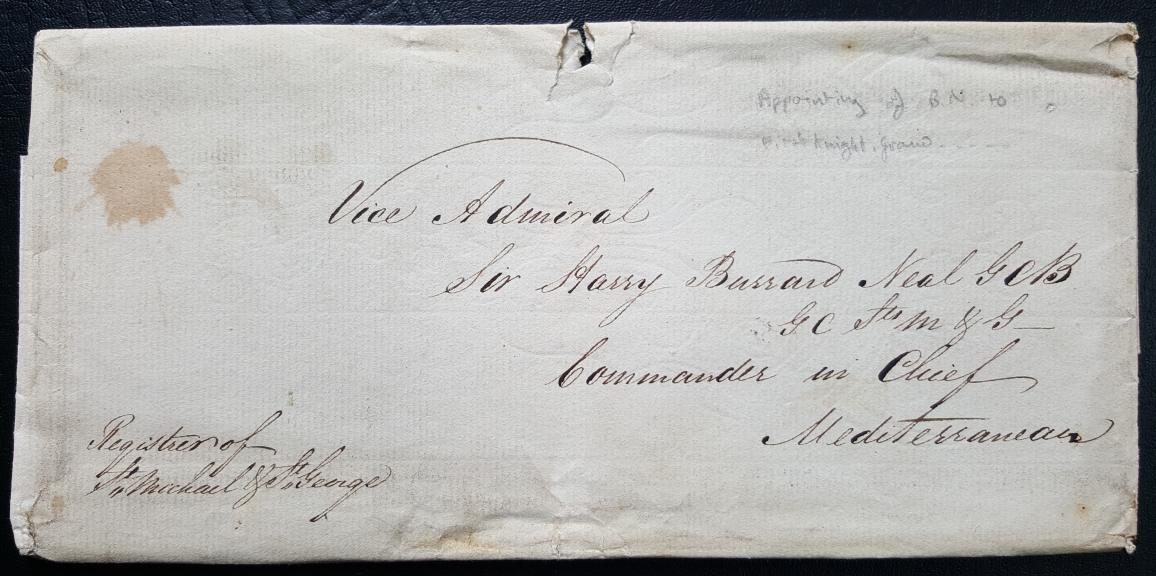 Appointing of B. N. to
Knight. Grand - - - -
Vice Admiral
Sir Harry Burrard Neal G C B
G C Sts M & G
Commander in Chief
Mediterranean
Registrer of
St Michael & St George